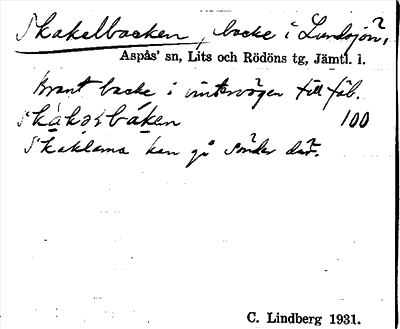 Skakelbacken, backe i Landsjön,
Aspås' sn, Lits och Rödöns tg, Jämtl. l.
Brant backe i vintervägen till fäb.
skákəsbákən 100
Skaklarna kan gå sönder där.
C. Lindberg 1931.